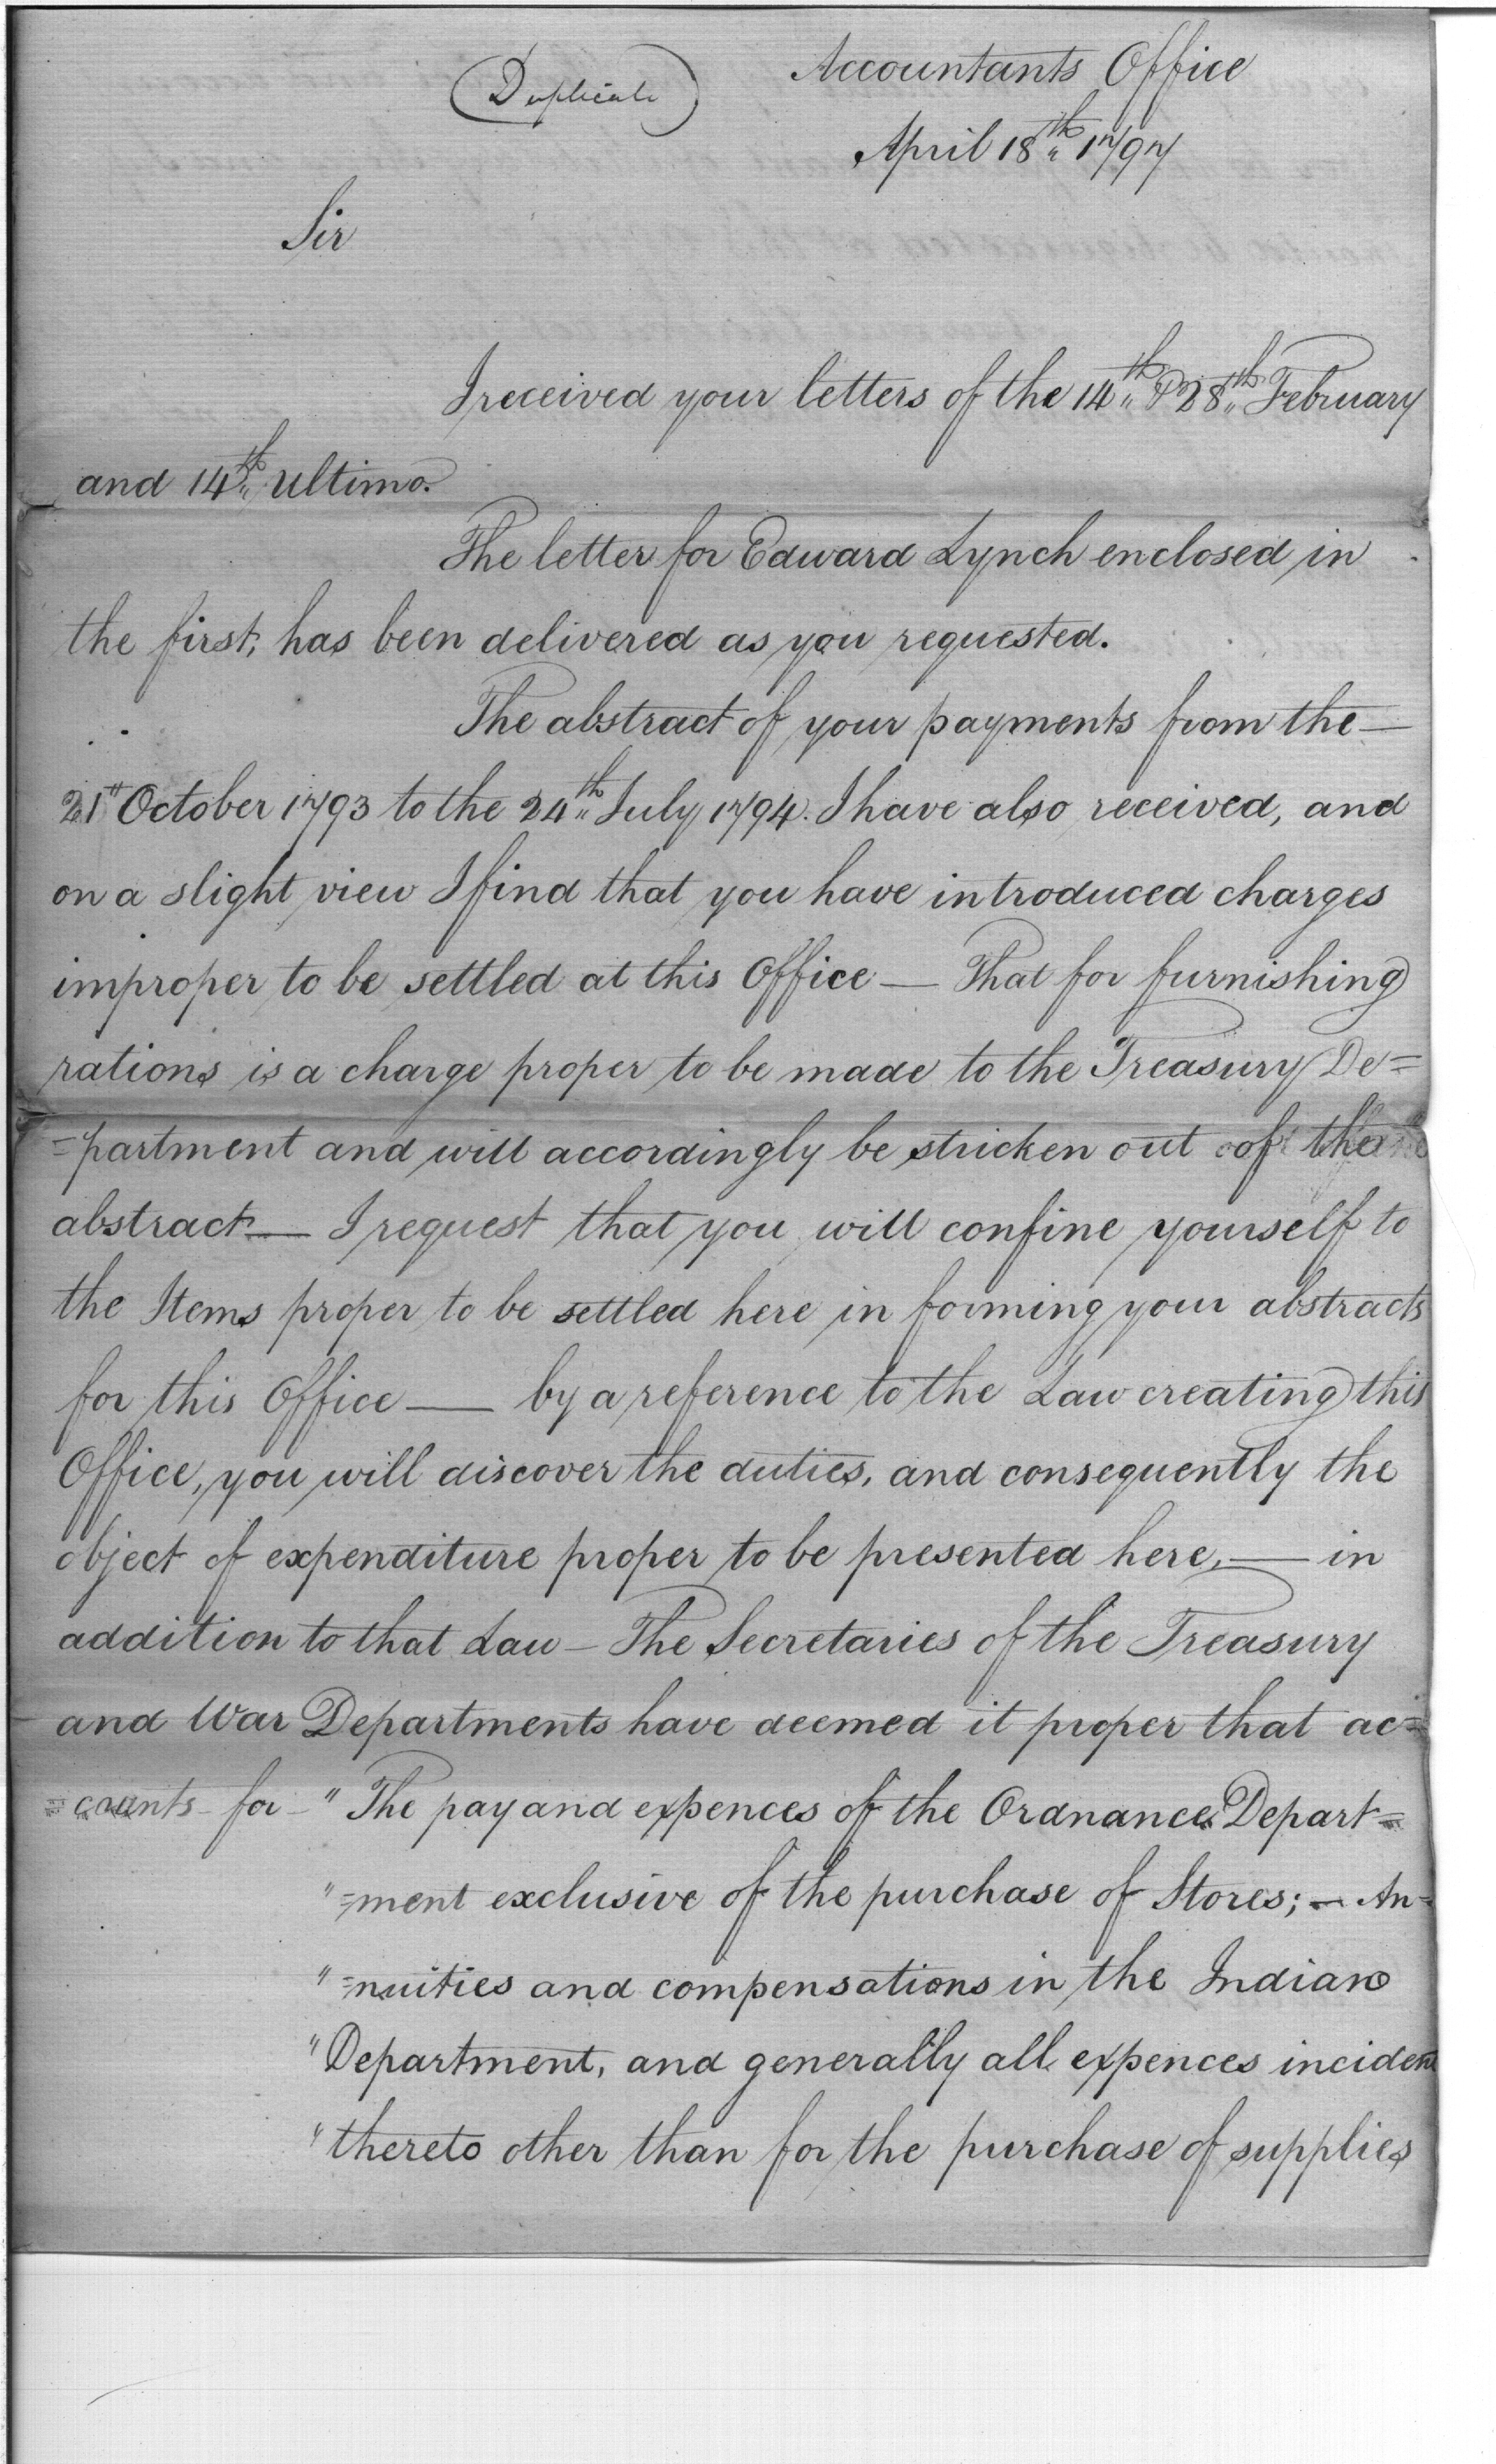 (Duplicate)
Accountants Office
April 18th 1797
Sir
I received your letters of the 14th & 28th February
and 14th Ultimo.
The letter for Edward Lynch enclosed in
the first, has been delivered as you requested.
The abstract of your payments from the —
21st October 1793 to the 24th July 1794. I have also received, and
on a slight view I find that you have introduced charges
improper to be settled at this Office — That for furnishing
rations is a charge proper to be made to the Treasury De=
=partment and will accordingly be stricken out of the
abstract — I request that you will confine yourself to
the Items proper to be settled here in forming your abstracts
for this Office — by a reference to the Law creating this
Office, you will discover the duties, and consequently the
object of expenditure proper to be presented here, — in
addition to that Law — The Secretaries of the Treasury
and War Departments have deemed it proper that ac=
=counts for — " The pay and expences of the Ordnance Depart=
" =ment exclusive of the purchase of Stores; — An=
" =nuities and compensations in the Indian
" Department, and generally all expences incident
" thereto other than for the purchase of supplies